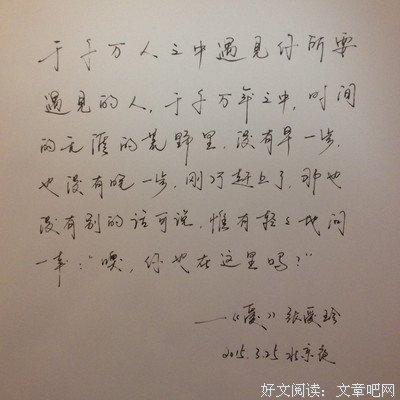 于千万人之中遇见你所要
遇见的人，于千万年之中，时间
的无涯的荒野里，没有早一步，
也没有晚一步，刚巧赶上了，那也
没有别的话可说，惟有轻轻地问
一声：“噢，你也在这里吗？”
—《爱》张爱玲
2015.3.25 北京夜
好文阅读：文章吧网